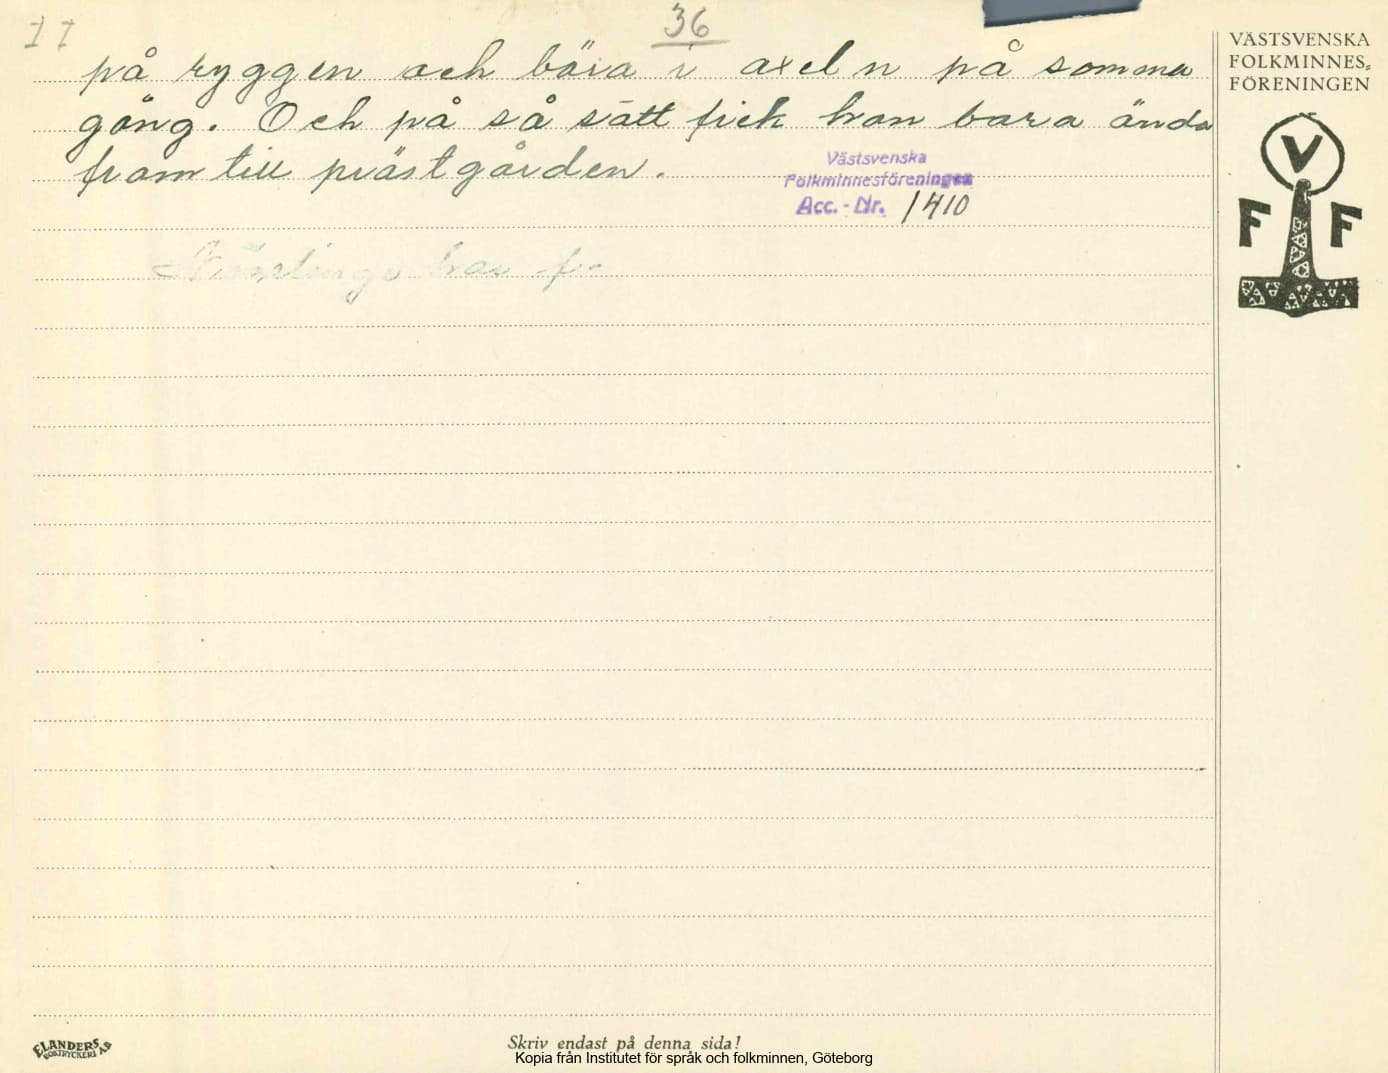 36
på ryggen och böra i axeln på somma
gång. Och på så sätt fick han bara ända
fram till prästgården.
Västsvenska
Folkminnesföreningen
Acc. - Nr. 1410
har
VÄSTSVENSKA
FOLKMINNES-
FÖRENINGEN
V
F F
ELANDERS
BOKTRYCKERI AB
Skriv endast på denna sida!
Kopia från Institutet för språk och folkminnen, Göteborg